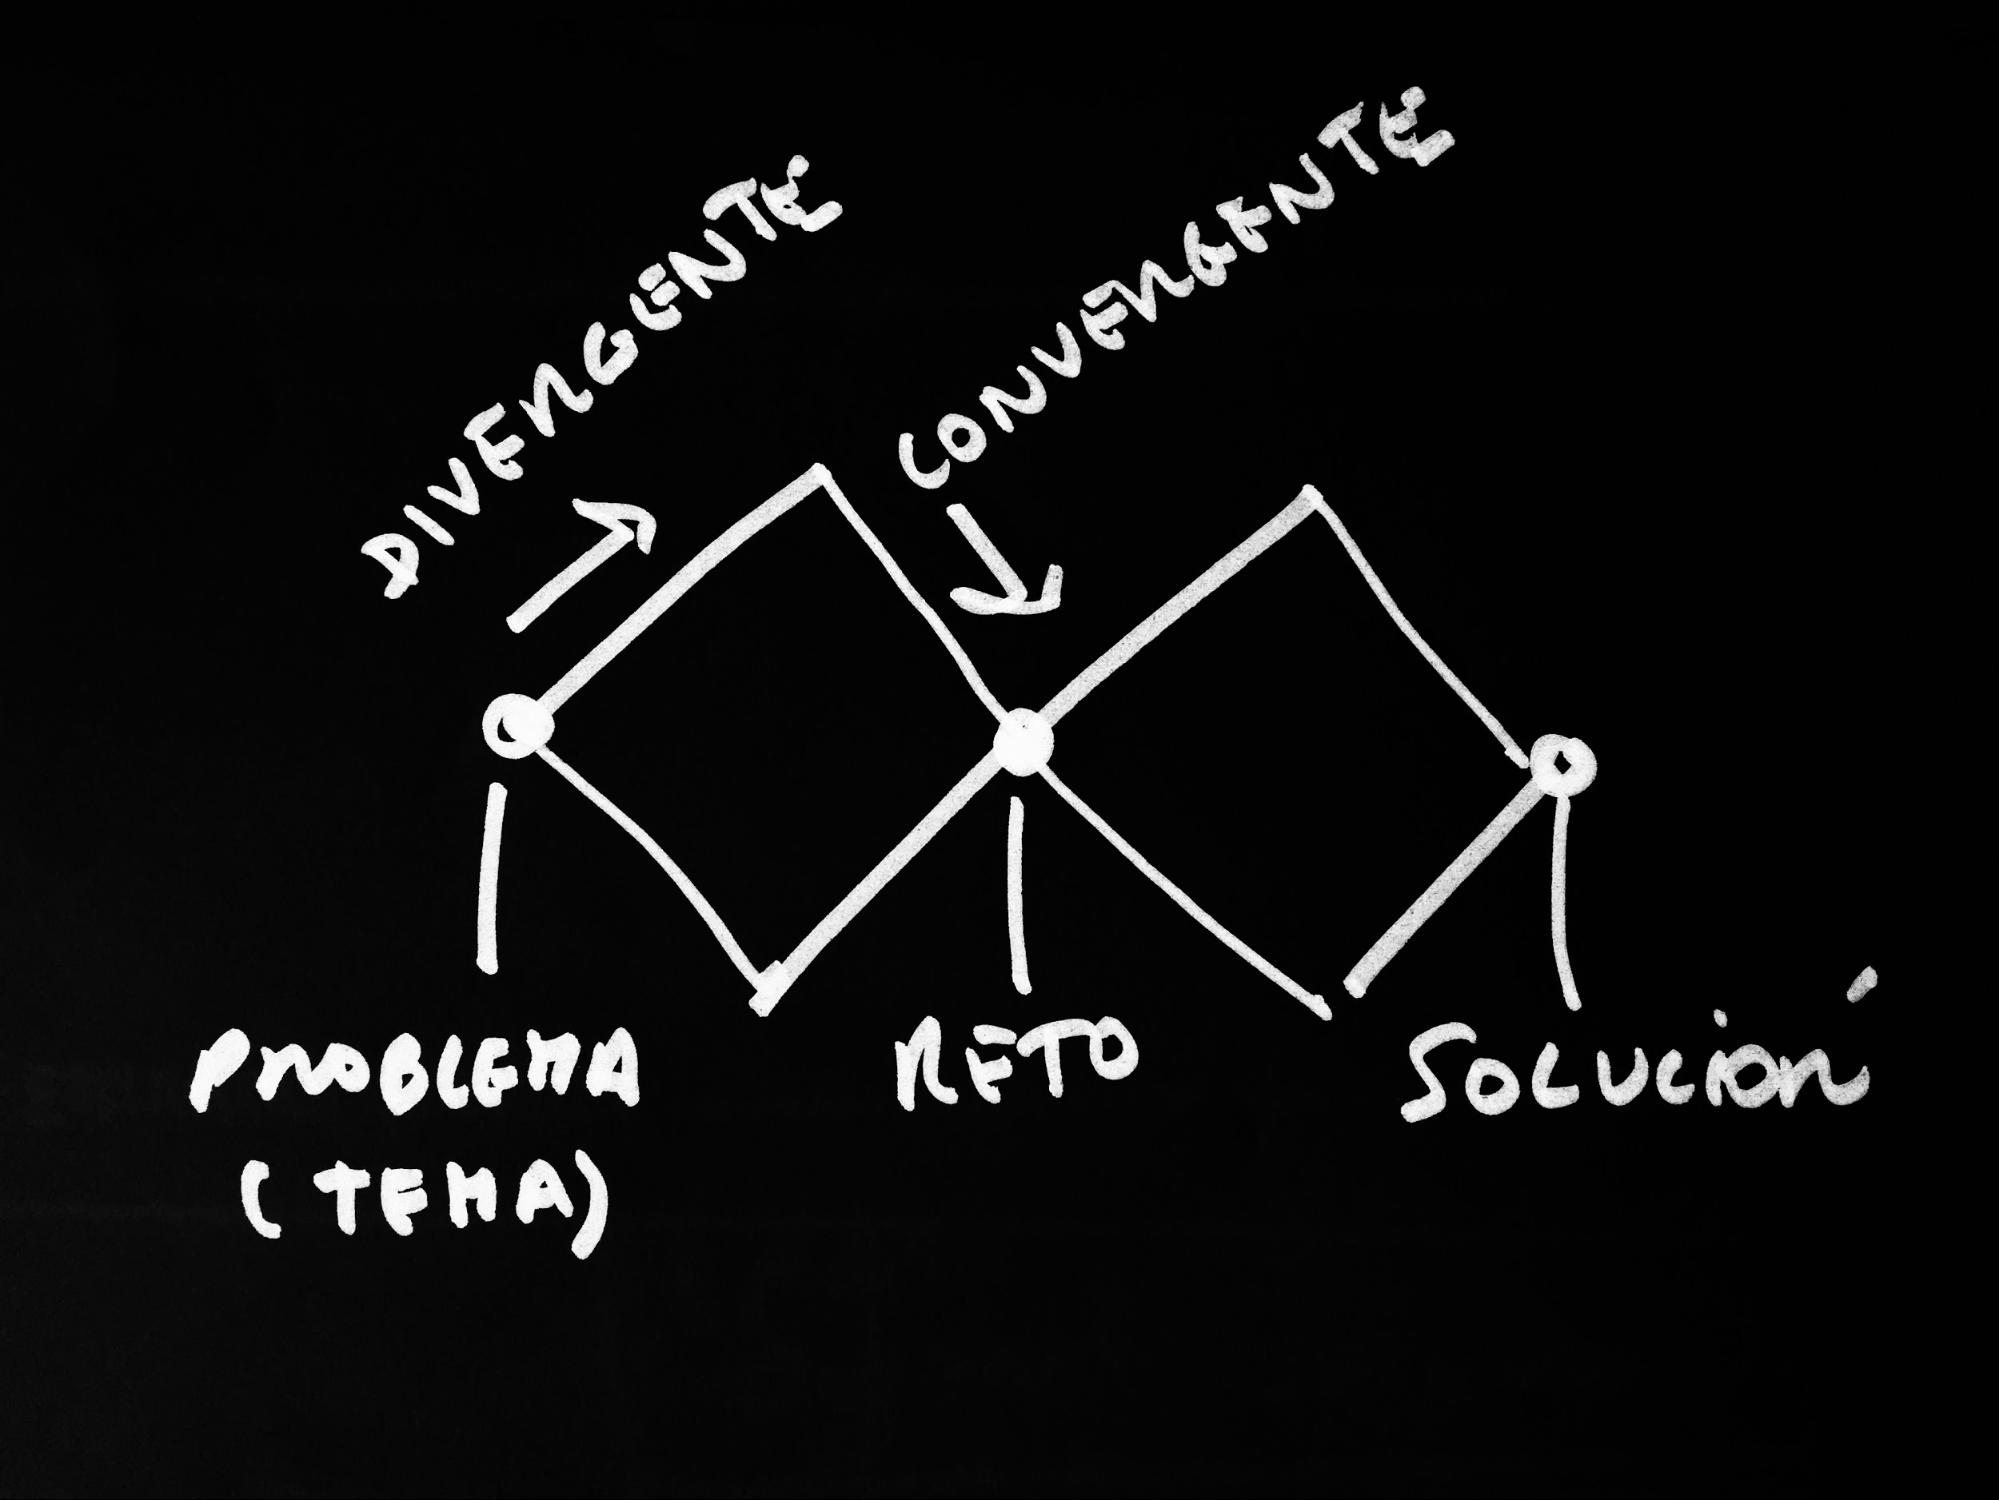 DIVERGENTE
CONVERGENTE
PROBLEMA
(TEMA)
RETO
SOLUCIÓN